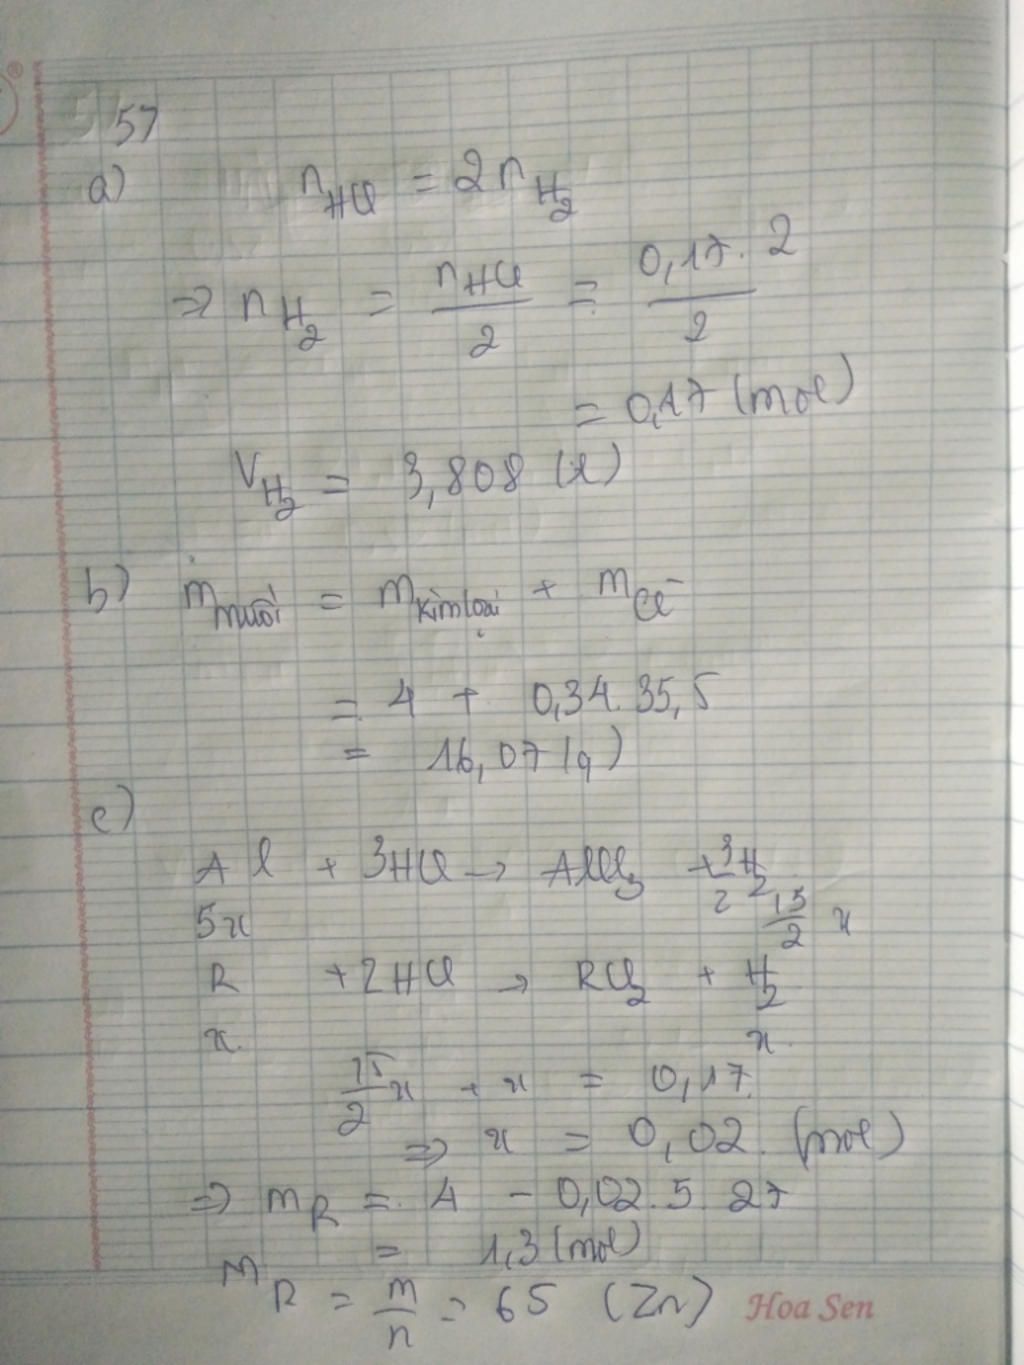 57
a) nHCl = 2nH2
=> nH2 = nHCl/2 = 0,17.2/2
= 0,17 (mol)
VH2 = 3,808 (l)
b) mmuối = mkim loại + mCl-
= 4 + 0,34.35,5
= 16,07 (g)
c)
Al + 3HCl -> AlCl3 + 3/2 H2
5x 15/2 x
R + 2HCl -> RCl2 + H2
x x
15/2 x + x = 0,17
=> x = 0,02. (mol)
=> mR = 4 - 0,02.5.27
= 1,3 (mol)
MR = m/n = 65 (Zn)
Hoa Sen